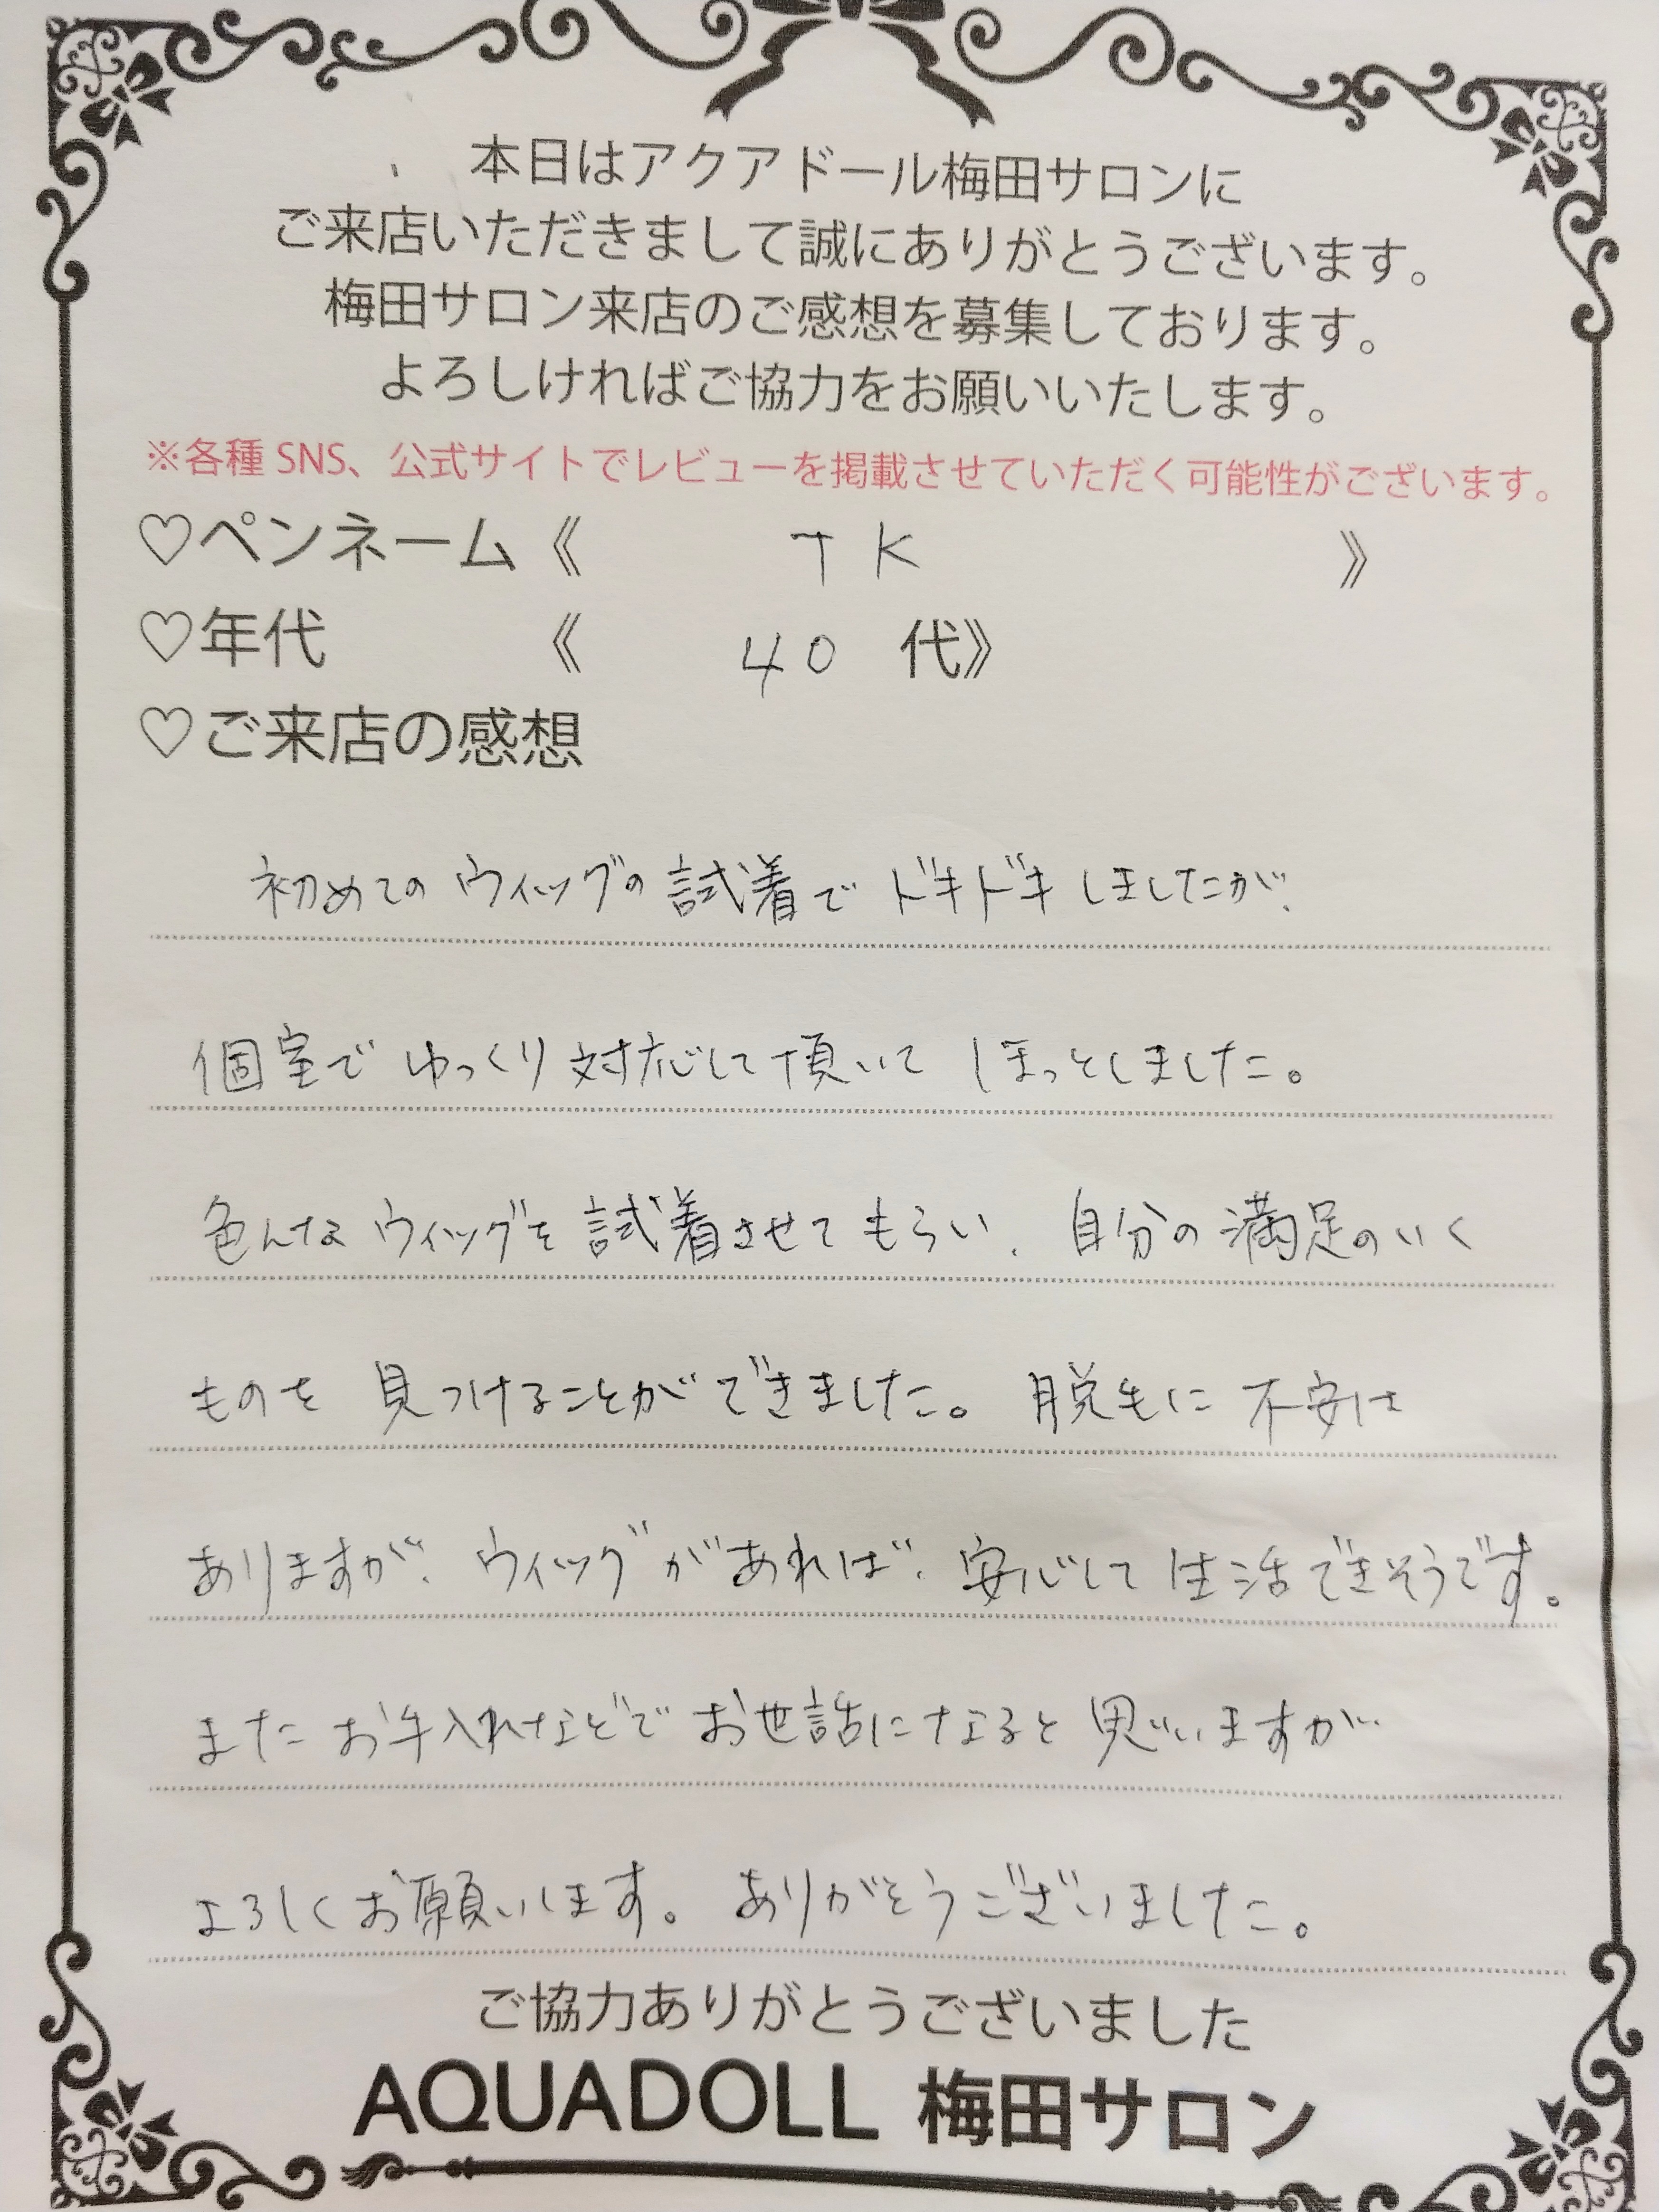 本日はアクアドール梅田サロンに
ご来店いただきまして誠にありがとうございます。
梅田サロン来店のご感想を募集しております。
よろしければご協力をお願いいたします。
※各種SNS、公式サイトでレビューを掲載させていただく可能性がございます。
♡ペンネーム《 TK 》
♡年代 《 40 代》
♡ご来店の感想
初めてのウィッグの試着でドキドキしましたが、
個室でゆっくり対応して頂いてほっとしました。
色んなウィッグを試着させてもらい、自分の満足のいく
ものを見つけることができました。脱毛に不安は
ありますが、ウィッグがあれば、安心して生活できそうです。
またお手入れなどでお世話になると思いますが
よろしくお願いします。ありがとうございました。
ご協力ありがとうございました
AQUADOLL 梅田サロン